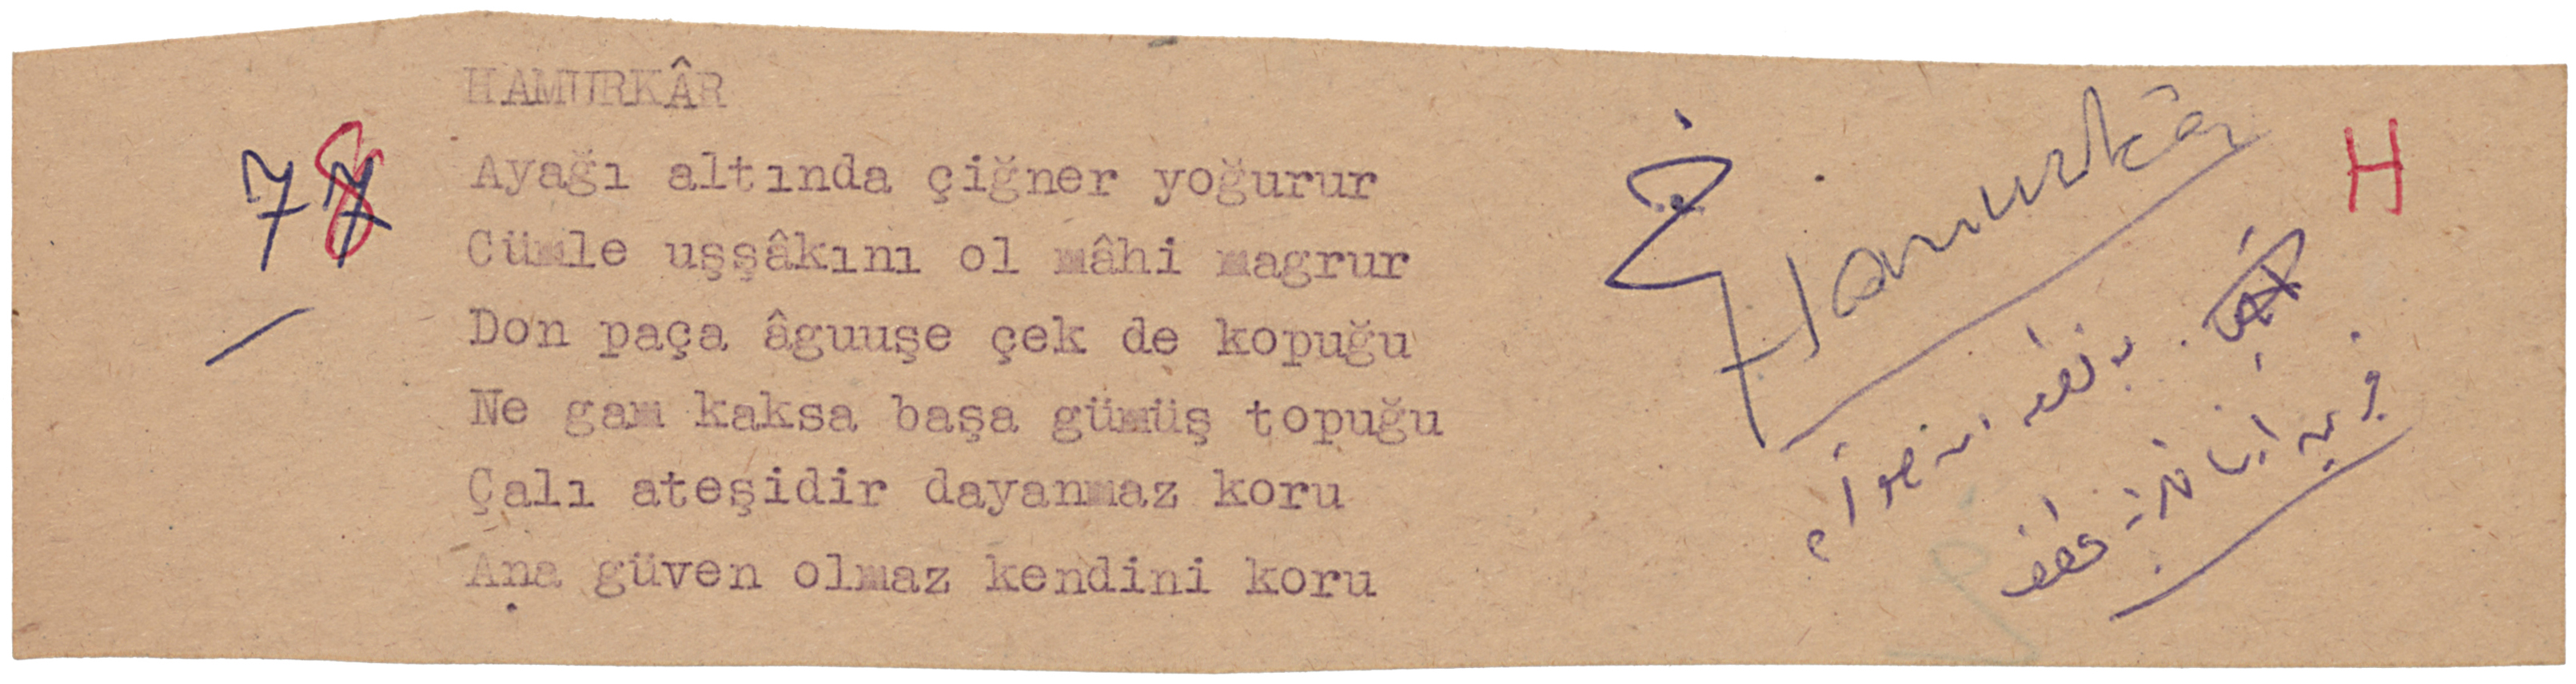 HAMURKÂR
78
Ayağı altında çiğner yoğurur
Cümle uşşâkını ol mâhi magrur
Don paça âguuşe çek de kopuğu
Ne gam kaksa başa gümüş topuğu
Çalı ateşidir dayanmaz koru
Ana güven olmaz kendini koru
Hamurkâr
H